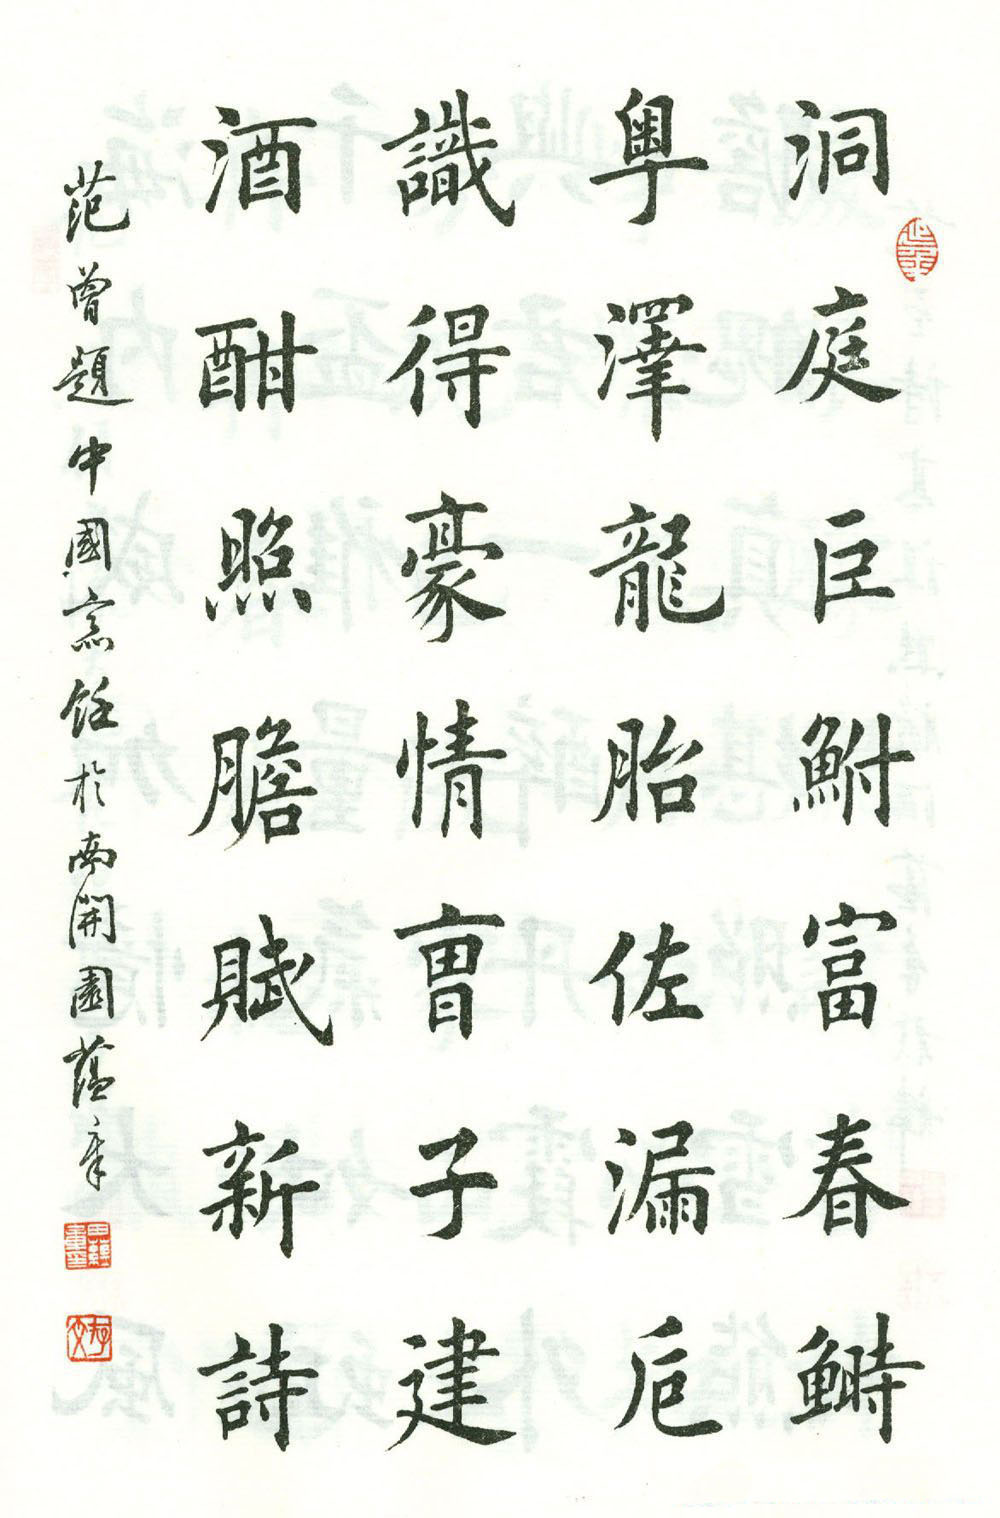 洞庭巨鮒富春鰣
粵澤龍胎佐漏卮
識得豪情曹子建
酒酣照膽賦新詩
范曾題中國烹飪於南開園蘊章